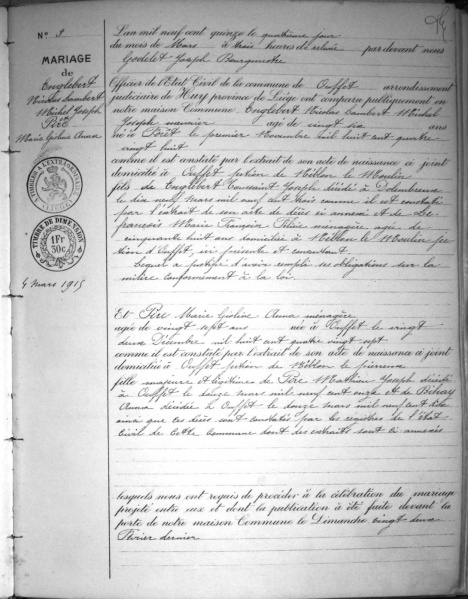 N° 3
MARIAGE
de
Englebert
Nicolas Lambert
Michel Joseph
&
Pire
Marie Gisline Anna
TIMBRE DE DIMENSION
1 Fr
30 c.
4 mars 1915
L'an mil neuf cent quinze le quatrième jour
du mois de Mars à trois heures de relevée par devant nous
Godelet Joseph Bourgmestre
Officier de l'Etat Civil de la commune de Ouffet arrondissement
judiciaire de Huy province de Liège ont comparu publiquement en
notre maison Commune Englebert Nicolas Lambert Michel
Joseph meunier âgé de vingt six ans
né à le premier Novembre mil huit cent quatre
vingt huit
comme il est constaté par l'extrait de son acte de naissance ci joint
domicilié à Ouffet section de Néblon le Moulin
fils de Englebert Toussaint Joseph décédé à
le dix neuf mars mil neuf cent trois comme il est constaté
par l'extrait de son acte de décès ci annexé et de
Marie Françoise ménagère âgée de
cinquante huit ans domiciliée à Néblon le Moulin sec
tion d'Ouffet, ici présente et consentant
Lequel a justifié d'avoir rempli ses obligations sur la
milice conformément à la loi
Et Pire Marie Gisline Anna ménagère
âgée de vingt sept ans née à Ouffet le vingt
deux Décembre mil huit cent quatre vingt sept
comme il est constaté par l'extrait de son acte de naissance ci joint
domiciliée à Ouffet section de Néblon le Pierreux
fille majeure et légitime de Pire Mathieu Joseph décédé
à Ouffet le douze mars mil neuf cent onze et de
Anna décédée à Ouffet le douze mars mil neuf cent
ainsi que ces décès sont constatés par les registres de l'état
Civil de cette Commune dont des extraits sont ci annexés
lesquels nous ont requis de procéder à la célébration du mariage
projeté entre eux et dont la publication a été faite devant la
porte de notre maison Commune le Dimanche vingt deux
Février dernier